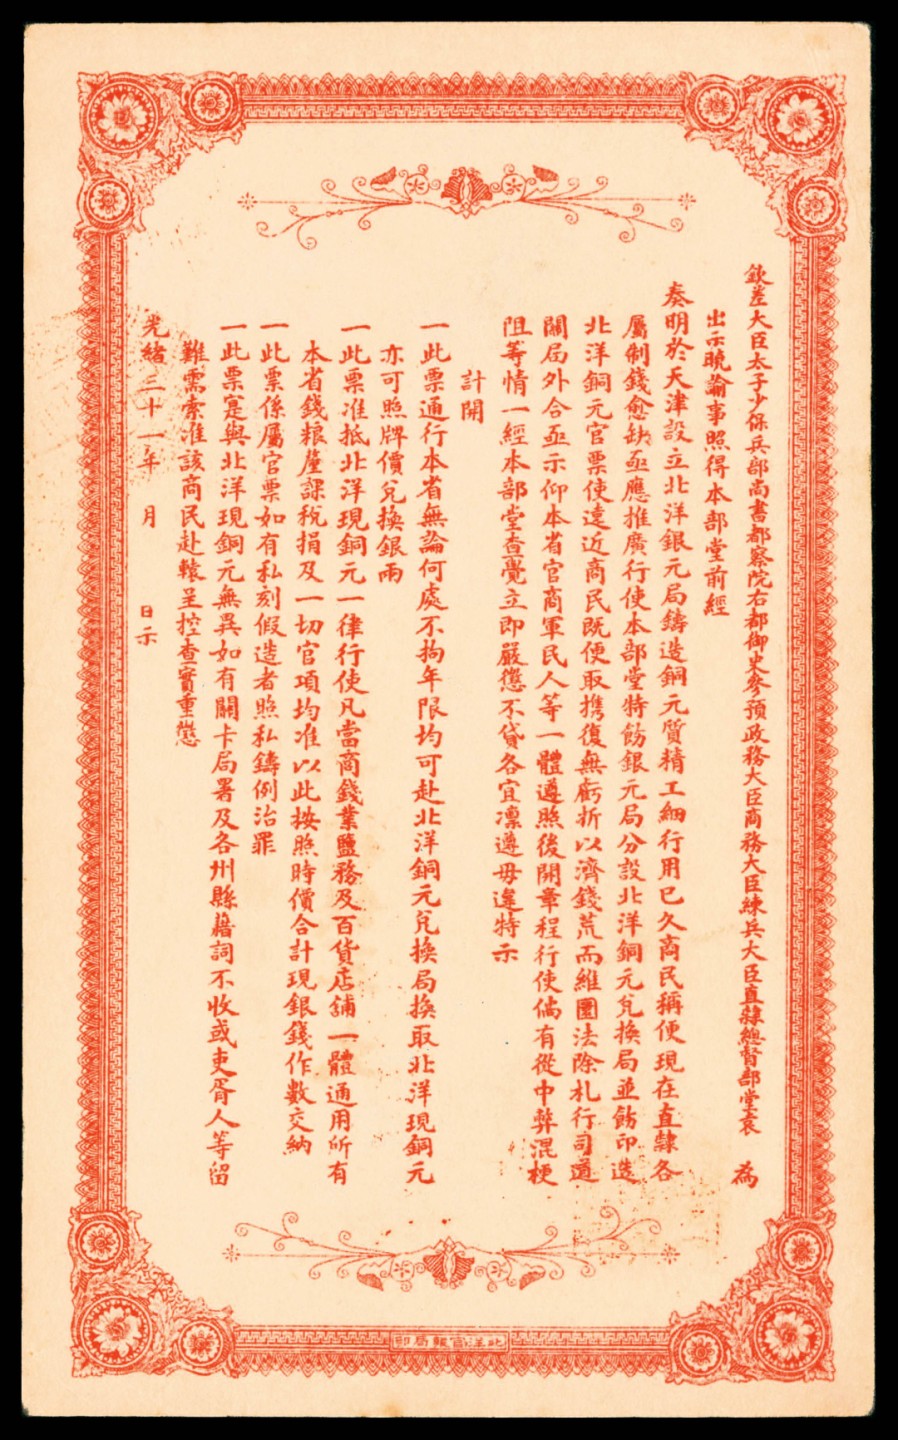 欽差大臣太子少保兵部尚書都察院右都御史參預政務大臣商務大臣練兵大臣直隸總督部堂袁　為
出示曉諭事照得本部堂前經
奏明於天津設立北洋銀元局鑄造銅元質精工細行用已久商民稱便現在直隸各
屬制錢愈缺亟應推廣行使本部堂特飭銀元局分設北洋銅元兌換局並飭印造
北洋銅元官票使遠近商民既便取携復無虧折以濟錢荒而維圜法除札行司道
關局外合亟示仰本省官商軍民人等一體遵照後開章程行使倘有從中弊混梗
阻等情一經本部堂查覺立即嚴懲不貸各宜凛遵毋違特示
計開
一此票通行本省無論何處不拘年限均可赴北洋銅元兌換局換取北洋現銅元
亦可照牌價兌換銀兩
一此票准抵北洋現銅元一律行使凡當商錢業鹽務及百貨店舖一體通用所有
本省錢粮釐課稅捐及一切官項均准以此按照時價合計現銀錢作數交納
一此票係屬官票如有私刻假造者照私鑄例治罪
一此票寔與北洋現銅元無異如有關卡局署及各州縣藉詞不收或吏胥人等留
難需索准該商民赴轅呈控查實重懲
光緒三十一年　月　　日示
北洋官報局印